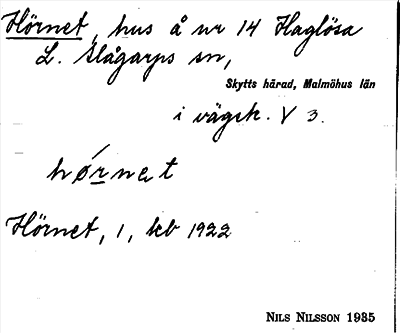 Hörnet, hus å nr 14 Haglösa
L. Slågarps sn,
Skytts härad, Malmöhus län
i vägsk. V 3.
hǿrnet
Hörnet, 1, leb 1922
NILS NILSSON 1935